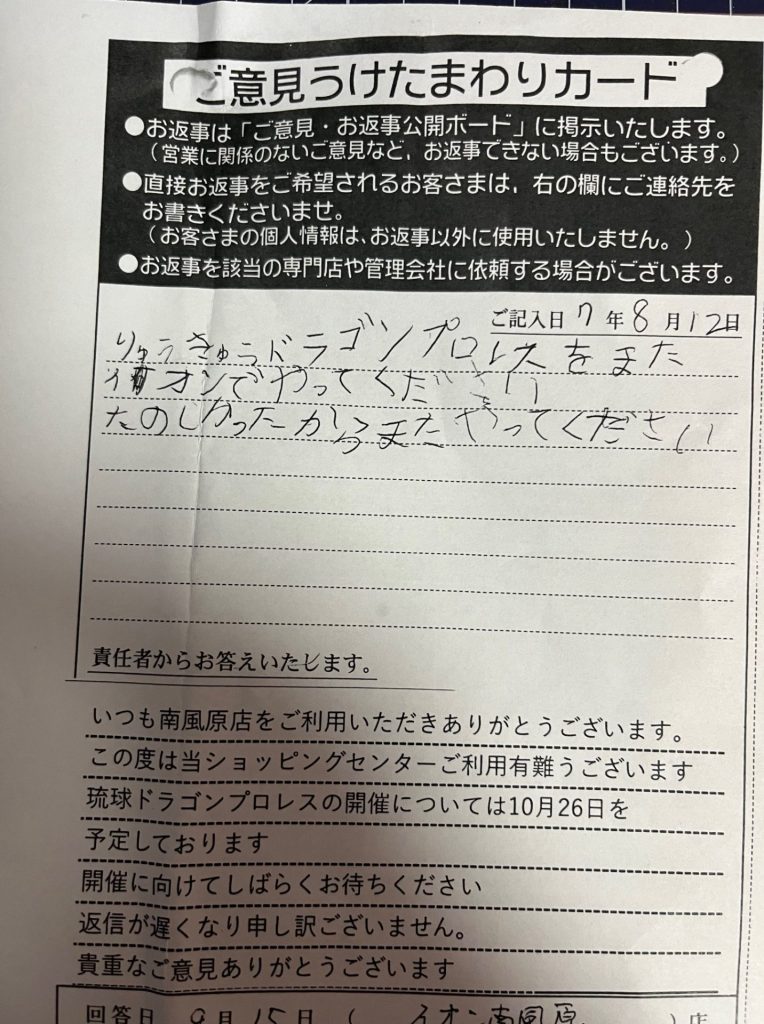 ご意見うけたまわりカード
●お返事は「ご意見・お返事公開ボード」に掲示いたします。
（営業に関係のないご意見など，お返事できない場合もございます。）
●直接お返事をご希望されるお客さまは，右の欄にご連絡先を
お書きくださいませ。
（お客さまの個人情報は、お返事以外に使用いたしません。）
●お返事を該当の専門店や管理会社に依頼する場合がございます。
ご記入日 7 年 8 月 12日
りゅうきゅうドラゴンプロレスをまた
イオンでやってください
たのしかったからまたやってください
責任者からお答えいたします。
いつも南風原店をご利用いただきありがとうございます。
この度は当ショッピングセンターご利用有難うございます
琉球ドラゴンプロレスの開催については10月26日を
予定しております
開催に向けてしばらくお待ちください
返信が遅くなり申し訳ございません。
貴重なご意見ありがとうございます
回答日 9月15日 （ イオン南風原 ）店